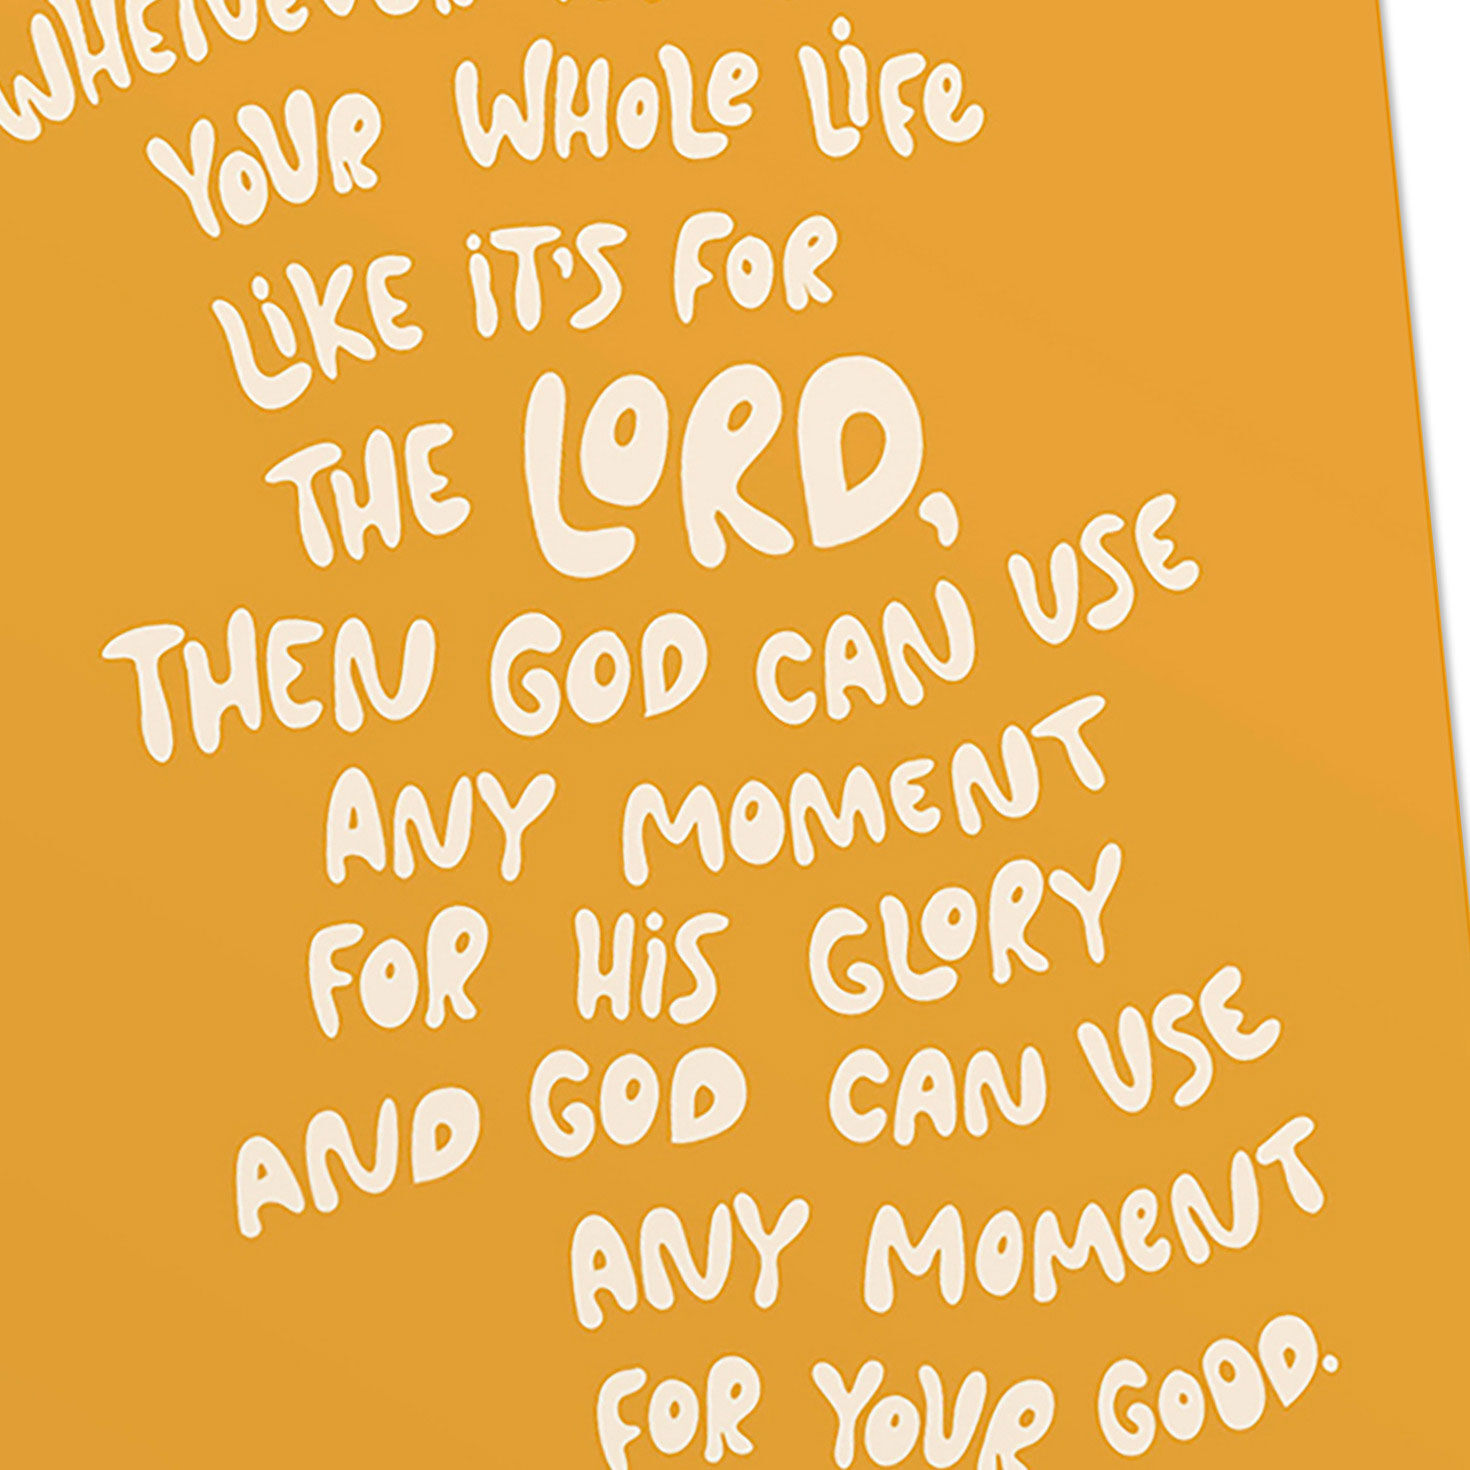 WHENEVER
YOUR WHOLE LiFe
LiKE iT'S FOR
THE LORD,
THEN GOD CAN USE
ANY MOMENT
FOR HiS GLORY
AND GOD CAN USE
ANY MOMeNT
FOR YOUR GOOD.